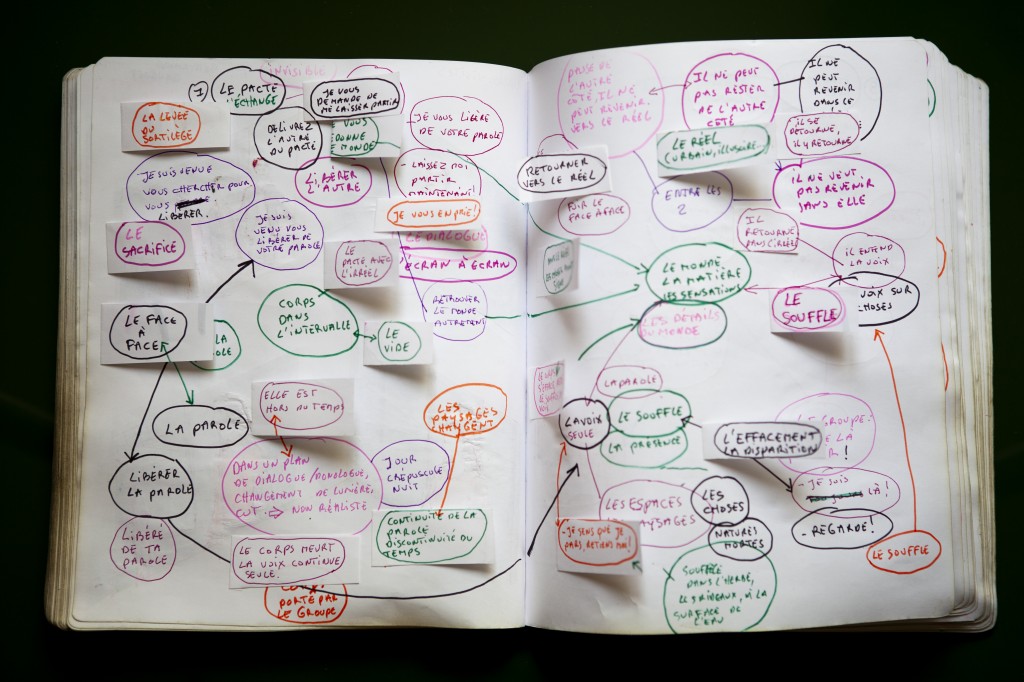 INVISIBLE
1) LE PACTE
D'ÉCHANGE
JE VOUS
DEMANDE DE
ME LAISSER PARTIR
LA LEVÉE
DU
SORTILÈGE
DÉLIVREZ
L'AUTRE
DU PACTE
VOUS
DONNE
MONDE
JE VOUS LIBÈRE
DE VOTRE PAROLE
LIBÉRER
L'AUTRE
- LAISSEZ MOI
PARTIR
MAINTENANT!
JE SUIS VENUE
VOUS CHERCHER POUR
VOUS
LIBÉRER.
JE VOUS EN PRIE!
LE
SACRIFICE
JE SUIS
VENU VOUS
LIBÉRER DE
VOTRE PAROLE
LE DIALOGUE
ÉCRAN À ÉCRAN
LE
PACTE AVEC
L'IRRÉEL
RETROUVER
LE MONDE
AUTREMENT
CORPS
DANS
L'INTERVALLE
LE
VIDE
LE FACE
À
FACE
LA
ROLE
ELLE EST
HORS DU TEMPS
LES
PAYSAGES
CHANGENT
LA PAROLE
LIBÉRER
LA PAROLE
DANS UN PLAN
DE DIALOGUE/MONOLOGUE,
CHANGEMENT DE LUMIÈRE,
CUT → NON RÉALISTE
JOUR
CRÉPUSCULE
NUIT
CONTINUITÉ DE LA
PAROLE
DISCONTINUITÉ DU
TEMPS
LIBÉRÉ
DE TA
PAROLE
LE CORPS MEURT
LA VOIX CONTINUE
SEULE.
PORTÉ PAR
LE GROUPE
PASSÉ DE
L'AUTRE
CÔTÉ, IL NE
PEUT REVENIR
VERS LE RÉEL
IL NE PEUT
PAS RESTER
DE L'AUTRE
CÔTÉ
IL NE
PEUT
REVENIR
DANS LE
IL SE
RETOURNE,
IL Y RETOURNE
LE RÉEL
(URBAIN, ILLUSOIRE)
RETOURNER
VERS LE RÉEL
ENTRE LES
2
IL NE VEUT
PAS REVENIR
SANS ELLE
FUIR LE
FACE À FACE
IL
RETOURNE
DANS L'IRRÉEL
IL ENTEND
LA VOIX
LE MONDE
LA MATIÈRE
LES SENSATIONS
LE
SOUFFLE
VOIX SUR
CHOSES
LES DÉTAILS
DU MONDE
LA PAROLE
LA VOIX
SEULE
LE SOUFFLE
LA PRÉSENCE
L'EFFACEMENT
LA DISPARITION
LE GROUPE:
LA
!
LES ESPACES
PAYSAGES
LES
CHOSES
- JE SUIS
LÀ!
NATURES
MORTES
- REGARDE!
- JE SENS QUE JE
PARS, RETIENS MOI!
LE SOUFFLE
SOUFFLE
DANS L'HERBE,
LES RIDEAUX, À LA
SURFACE DE
L'EAU